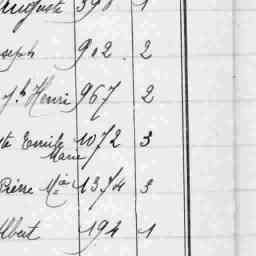 Auguste 390 1
seph 902. 2
Jh Henri 967 2
te Emile 1072 3
Marie
Pierre Mie 1374 3
Albert 194 1